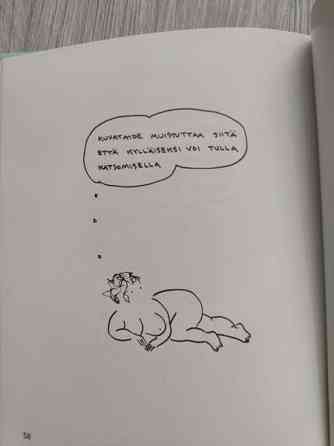 KUVATAIDE MUISTUTTAA SIITÄ
ETTÄ KYLLÄISEKSI VOI TULLA
KATSOMISELLA
58